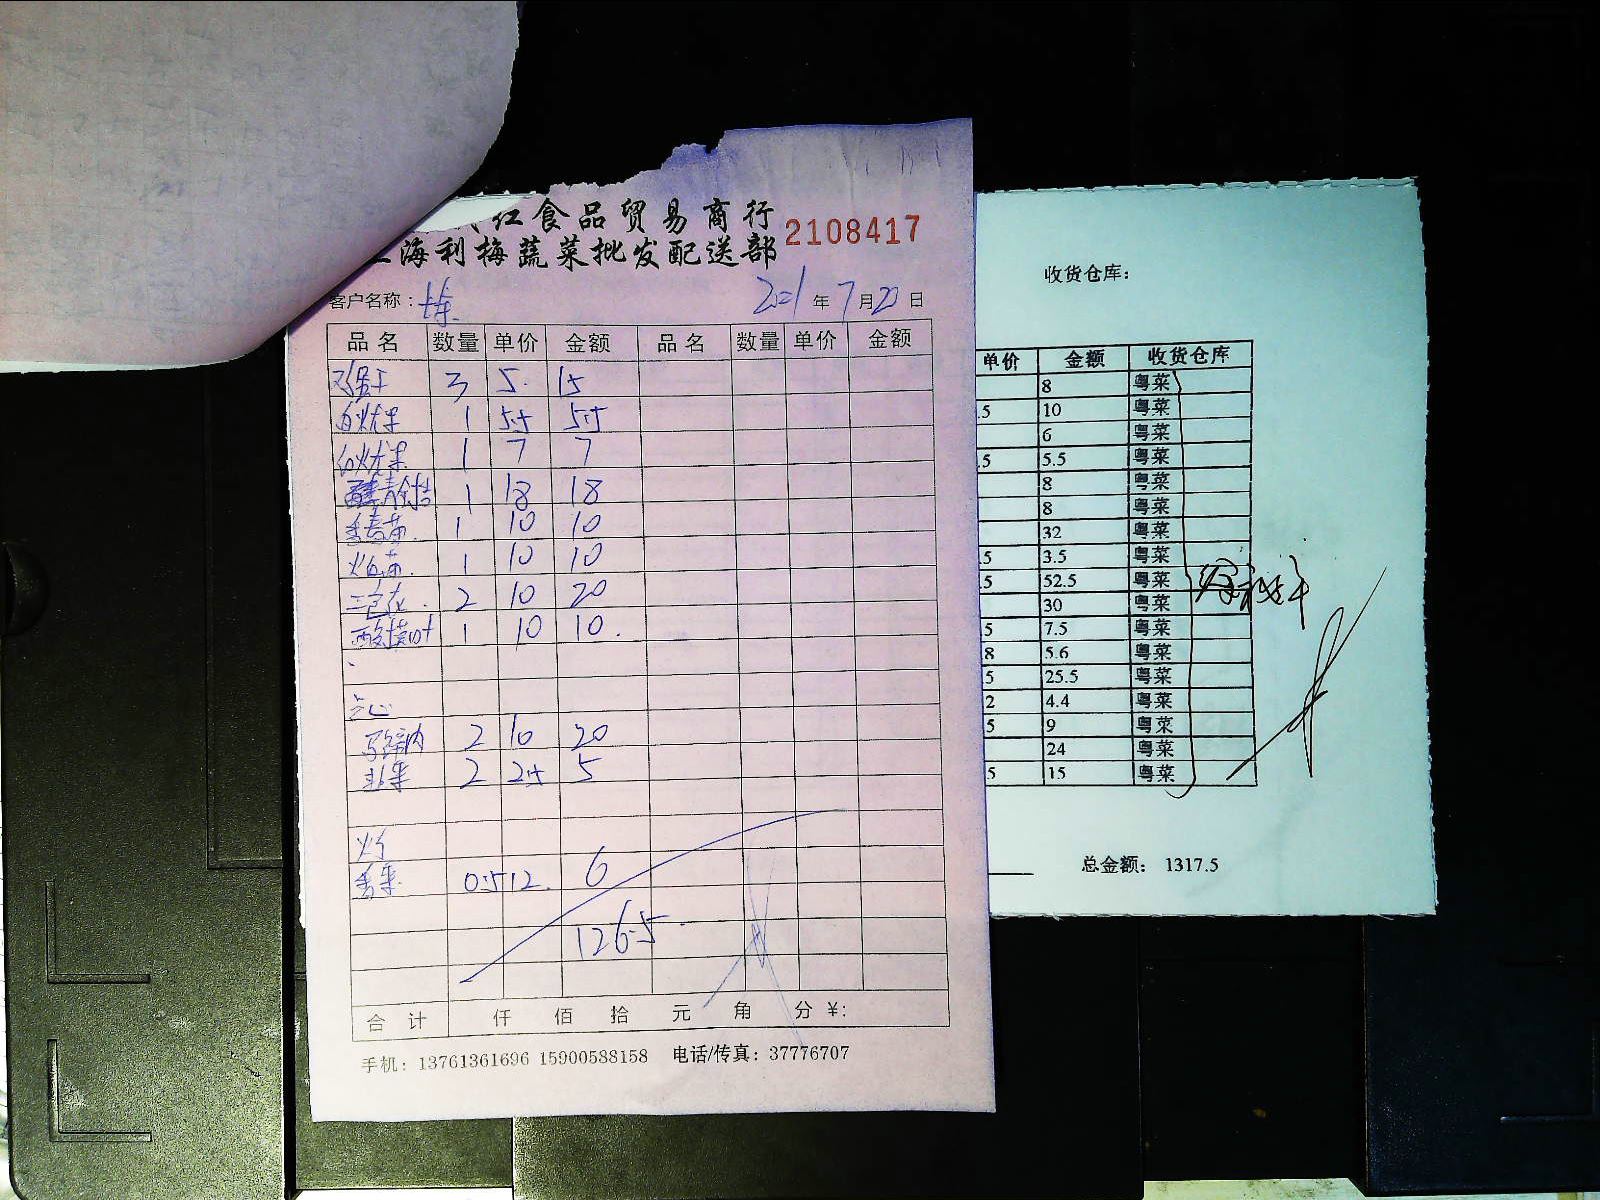 红食品贸易商行
海利梅蔬菜批发配送部
2108417
客户名称：
2021年7月20日
品名 数量 单价 金额 品名 数量 单价 金额
3 5. 15
1 5.5 5.5
1 7 7
1 18 18
香春苗. 1 10 10
1 10 10
三色花. 2 10 20
1 10 10.
点心
2 10 20
韭菜 2 2.5 5
香菜. 0.5 12. 6
126.5
合计 仟 佰 拾 元 角 分 ¥:
手机：13761361696 15900588158 电话/传真：37776707
收货仓库：
单价 金额 收货仓库
8 粤菜
.5 10 粤菜
6 粤菜
.5 5.5 粤菜
8 粤菜
8 粤菜
32 粤菜
.5 3.5 粤菜
.5 52.5 粤菜
30 粤菜
5 7.5 粤菜
8 5.6 粤菜
5 25.5 粤菜
2 4.4 粤菜
5 9 粤菜
24 粤菜
5 15 粤菜
总金额： 1317.5